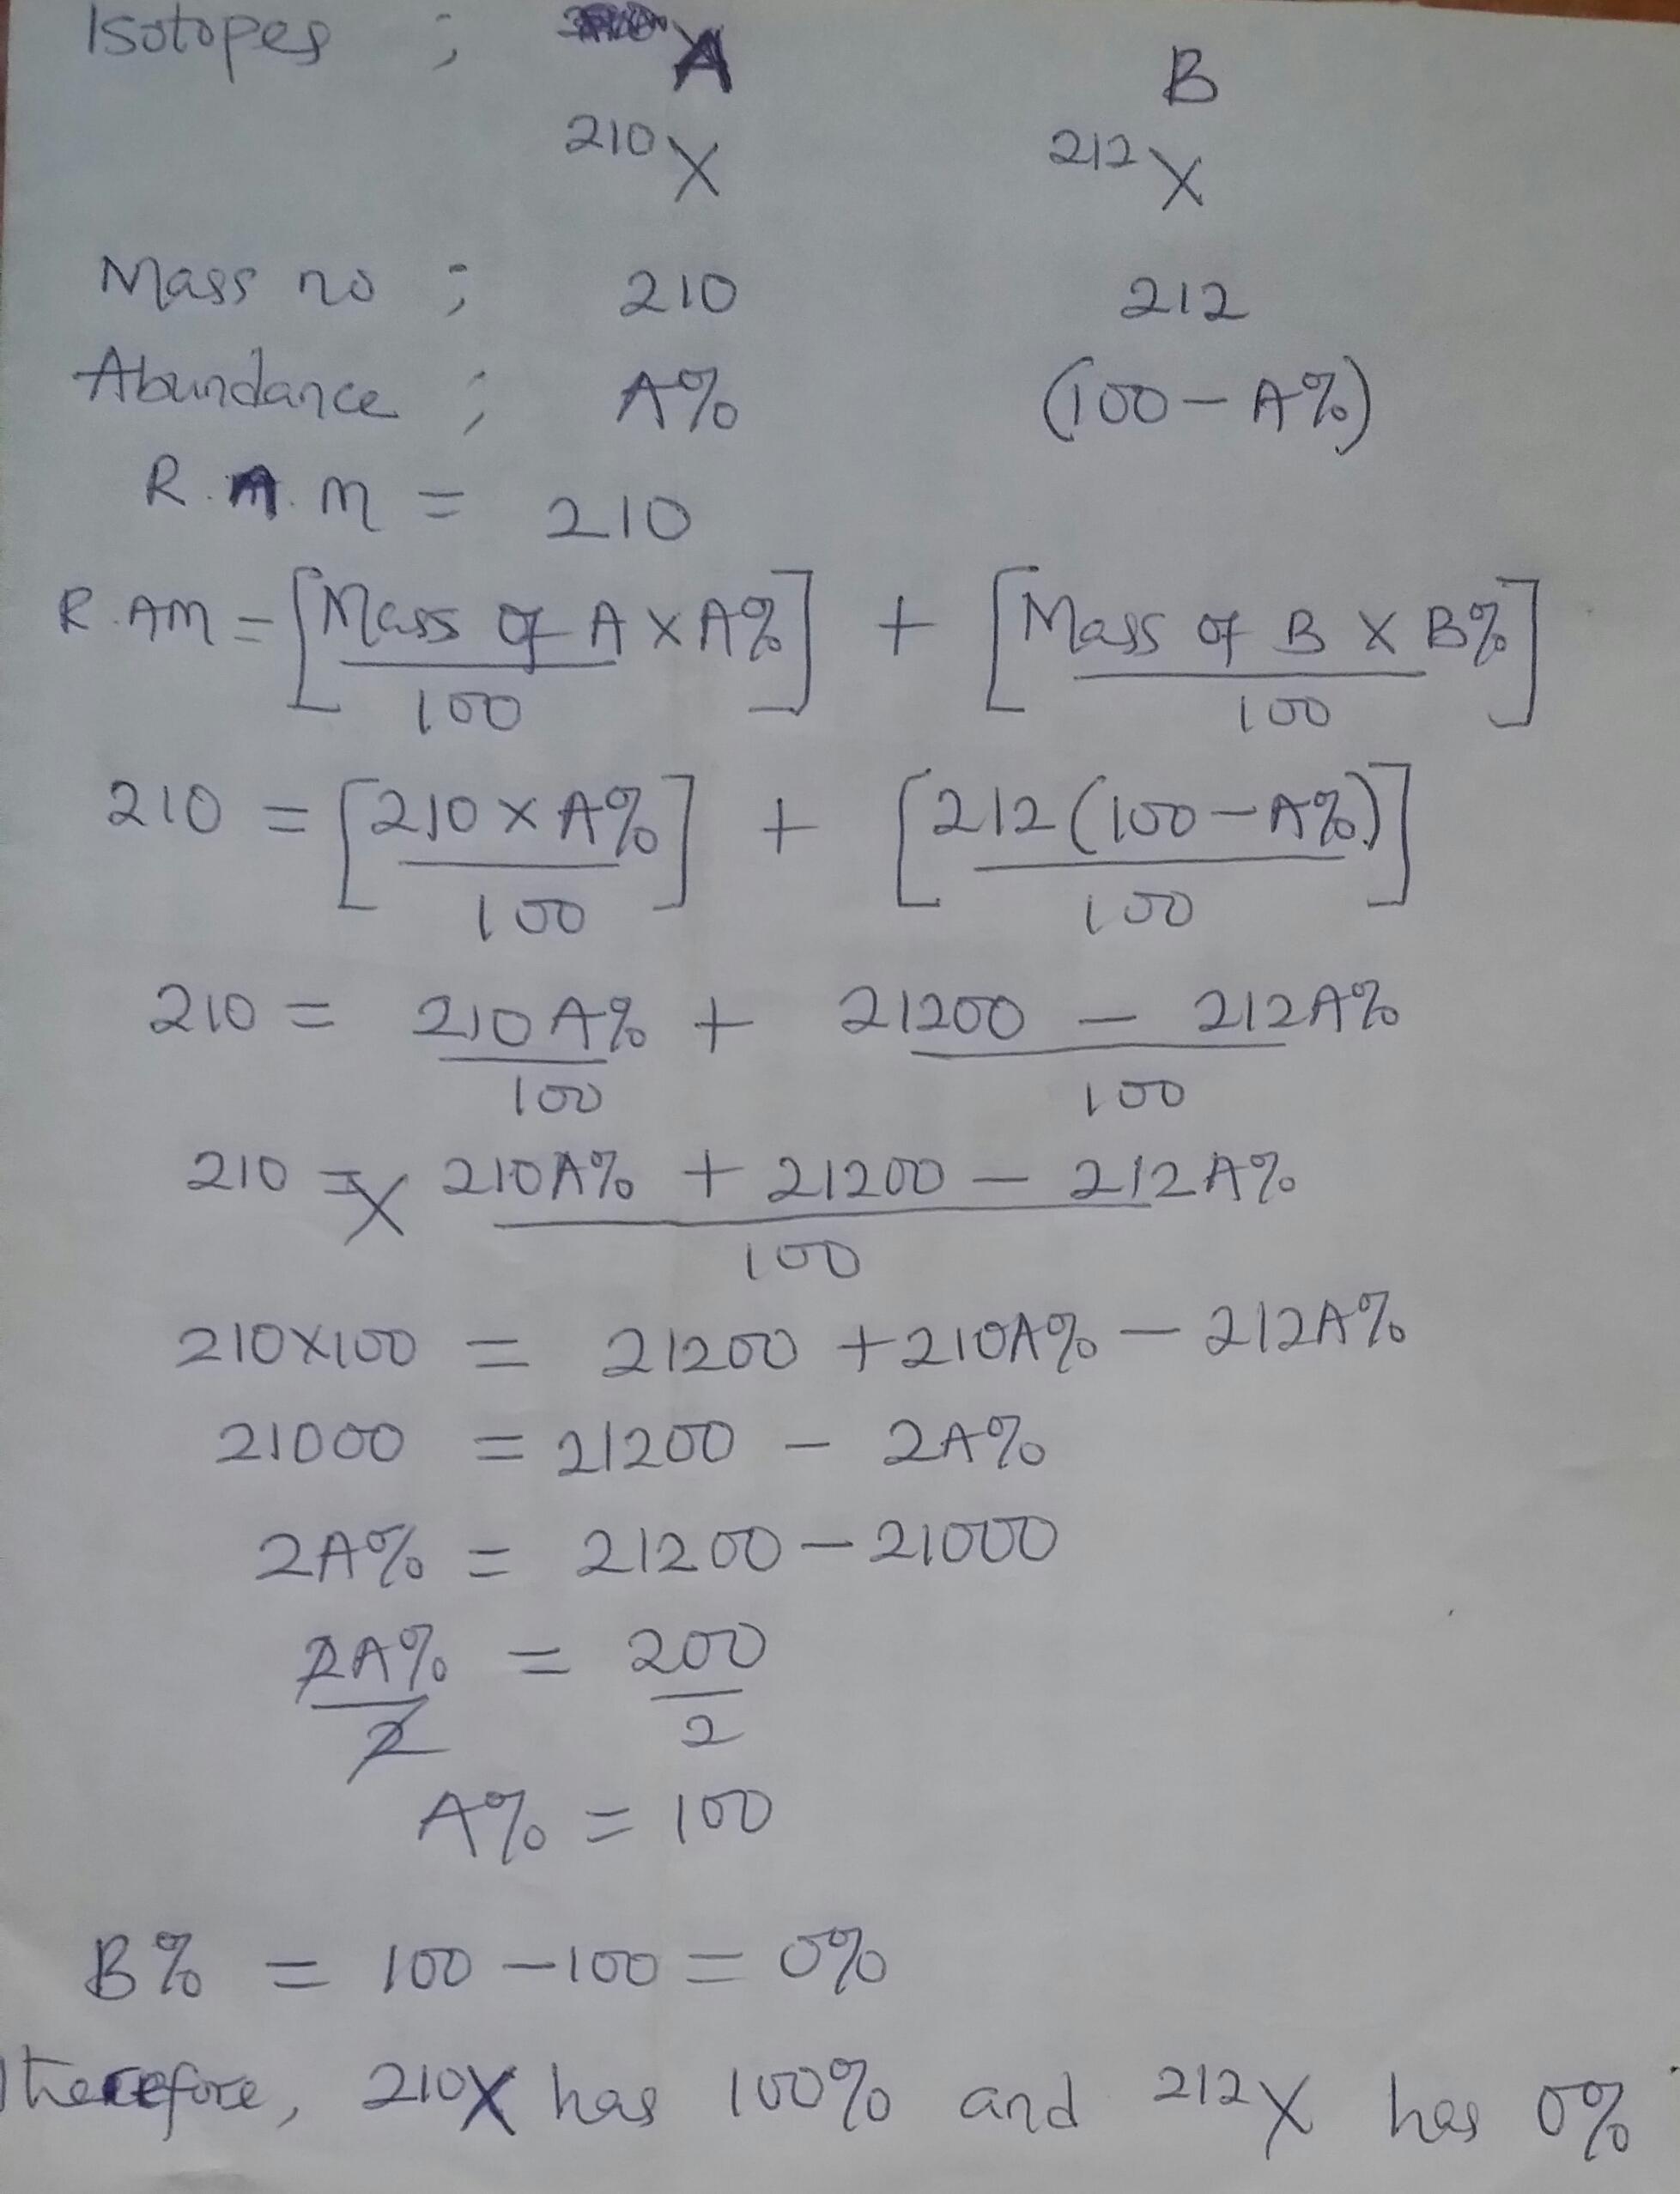 Isotopes ; A B
210X 212X
Mass no ; 210 212
Abundance ; A% (100 - A%)
R.A.M = 210
R.AM = [Mass of A X A% / 100] + [Mass of B X B% / 100]
210 = [210 X A% / 100] + [212(100 - A%) / 100]
210 = 210 A% / 100 + 21200 - 212A% / 100
210 = 210A% + 21200 - 212A% / 100
210X100 = 21200 + 210A% - 212A%
21000 = 21200 - 2A%
2A% = 21200 - 21000
2A% / 2 = 200 / 2
A% = 100
B% = 100 - 100 = 0%
therefore, 210X has 100% and 212X has 0%